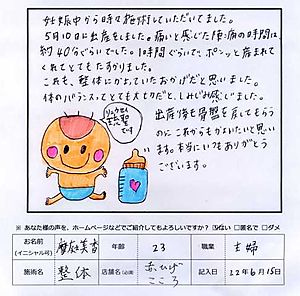 妊娠中から時々施術していただいてました。
5月10日に出産をしました。痛いと感じた陣痛の時間は
約40分ぐらいでした。1時間ぐらいで、ポンッと産まれて
くれてとてもたすかりました。
これも、整体にかよっていたおかげだと思いました。
体のバランスってとても大切だと、しみじみ感じました。
出産後も骨盤を戻してもらう
のにこれからもかよいたいと思い
ます。本当にいつもありがとう
ございます。
です
※ あなた様の声を、ホームページなどでご紹介してもよろしいですか? 良い 匿名で ダメ
お名前 (イニシャル可) 年齢 23 職業 主婦
施術名 整体 店舗名(必須) あかひげ こころ 記入日 22年6月15日